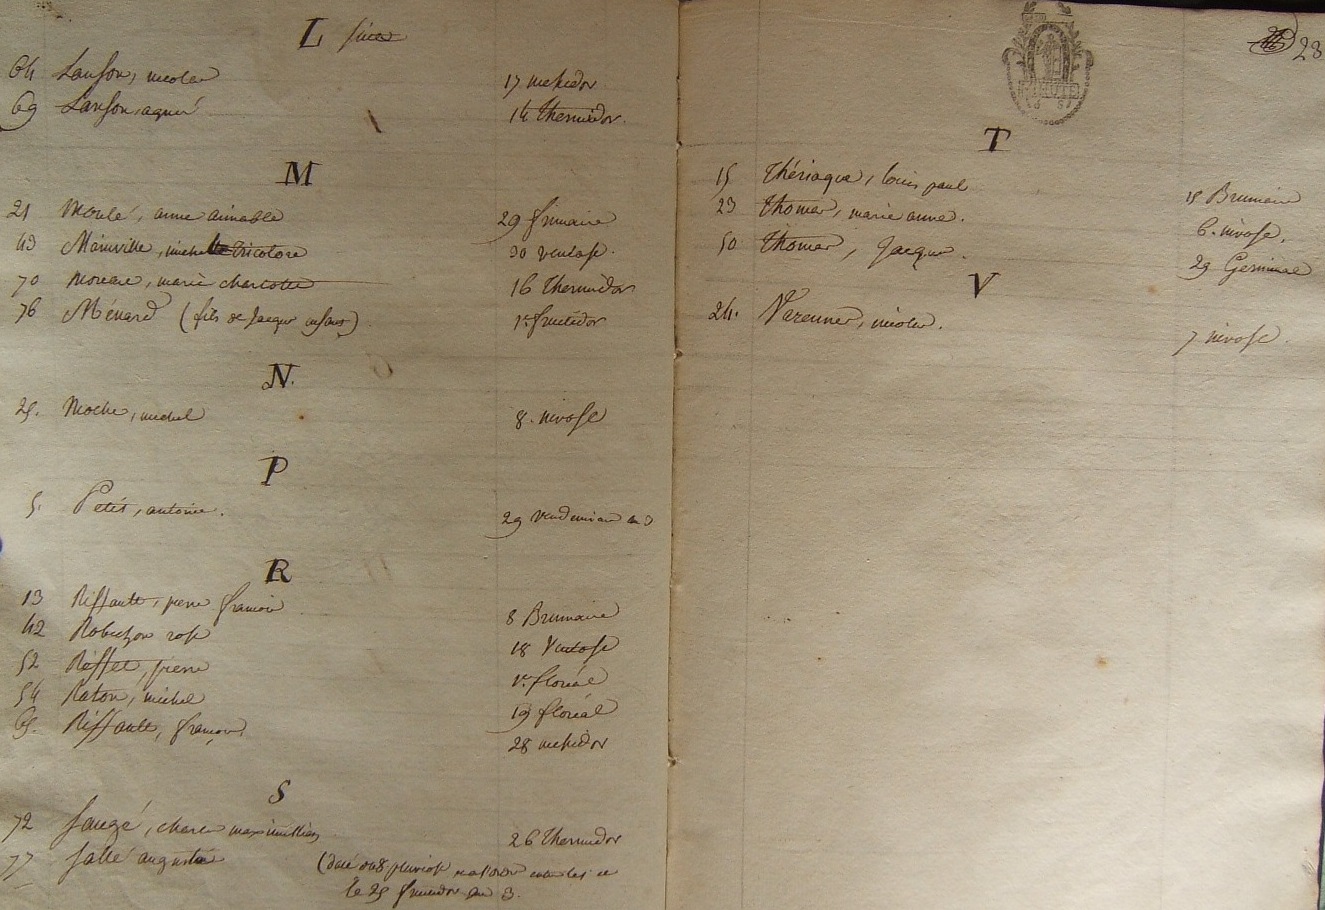 L suite
64 Lanson, nicolas 17 messidor
69 Lanson, agnès 14 Thermidor.
M
21 Moulé, anne aimable 29 frimaire
43 Mainville, michel Tricolore 30 ventose.
70 Moreau, marie charlotte 16 Thermidor
76 Ménard (fils de Jacques ) 1er fructidor
N.
25. Noche, michel 8. nivose
P
5. Petit, antoine. 29 vendemiaire an 3
R
13 Riffault, pierre françois 8 Brumaire
42 Robichon rose 18 Ventose
52 Riffet, pierre 1er floréal
54 Raton, michel 19 floréal
65. Riffault, françois 28 messidor
S
72 Saugé, charles maximillien 26 Thermidor
77 Sallé auguste (daté du 8 pluviose
le 25 fructidor an 3.
28
T
15 Thériaque, louis paul 15 Brumaire
23 Thomas, marie anne. 6. nivose.
50 Thomas, Jacques. 29 Germinal
V
24. Varennes, nicolas. 7 nivose.